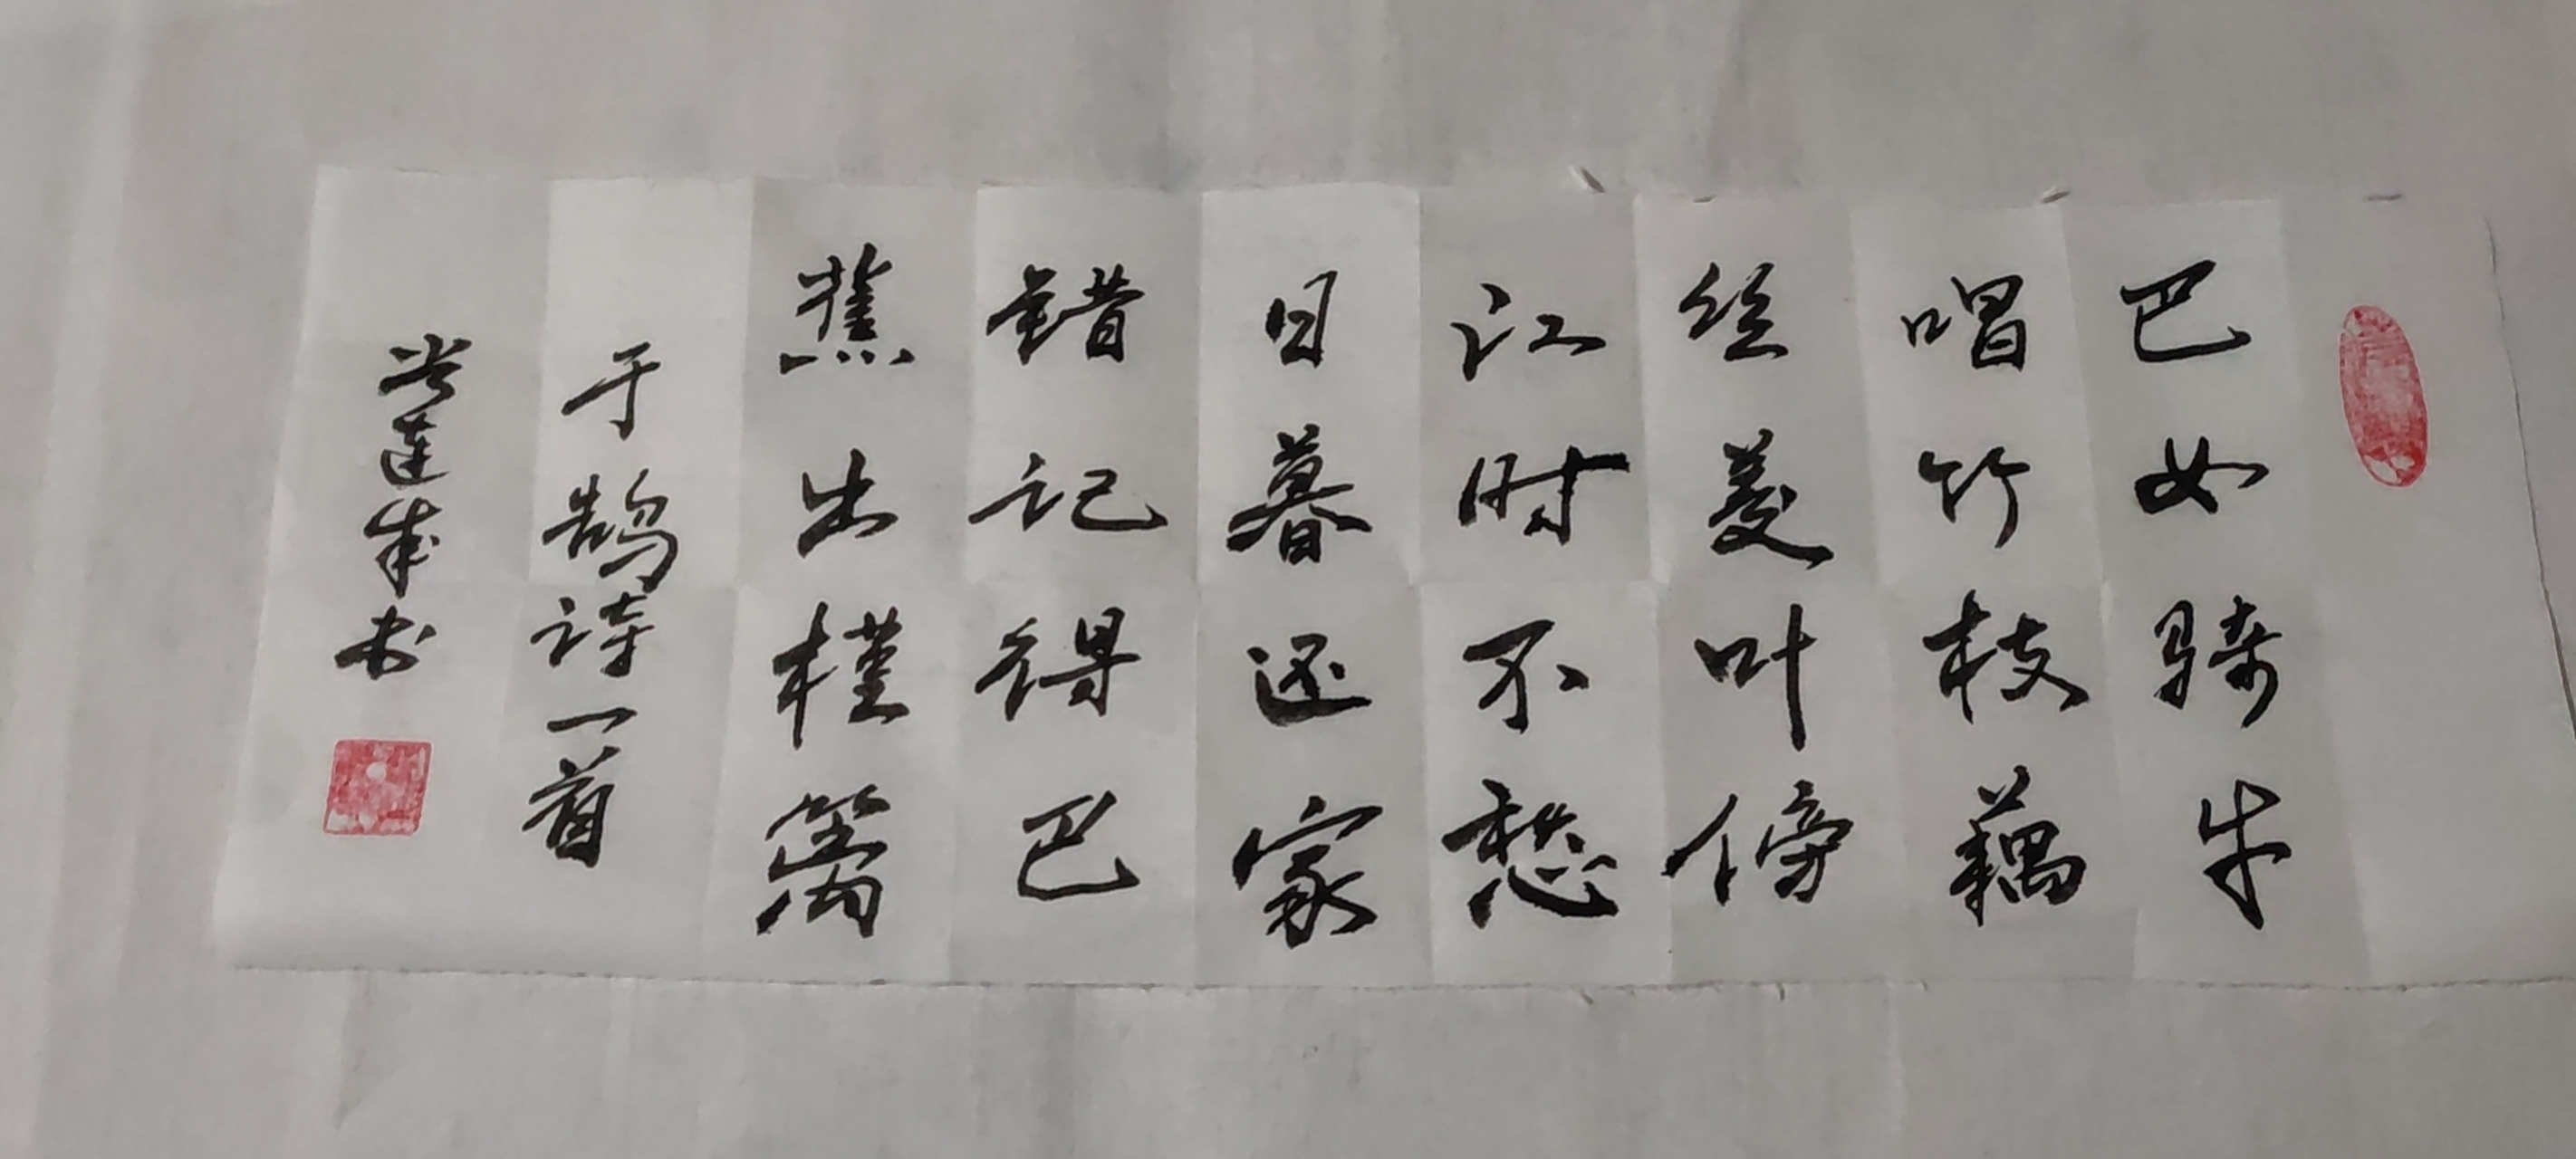 巴女骑牛
唱竹枝藕
丝菱叶傍
江时不愁
日暮还家
错记得巴
蕉出槿篱
于鹄诗一首
莲生书